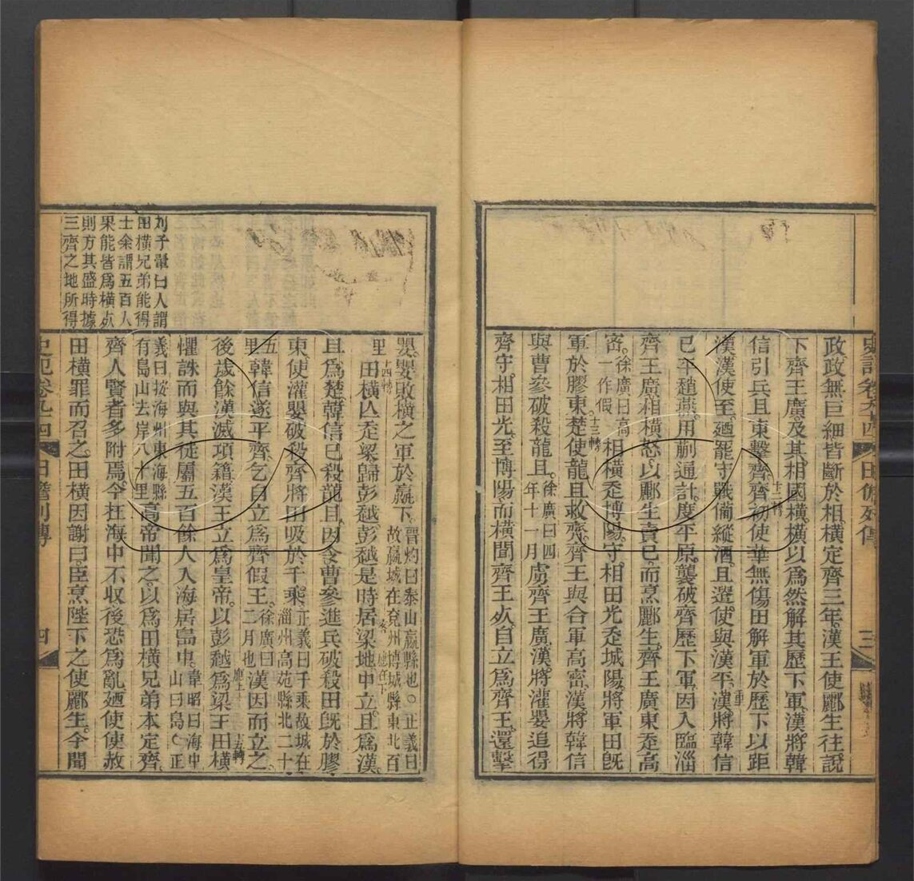 史記卷九十四 田儋列傳 三
政政無巨細皆斷於相橫定齊三年漢王使酈生往說
下齊王廣及其相國橫橫以為然解其歷下軍漢將韓
信引兵且東擊齊齊初使華無傷田解軍於歷下以距
漢漢使至廼罷守戰備縱酒且遣使與漢平漢將韓信
已平趙燕用蒯通計度平原襲破齊歷下軍因入臨淄
齊王廣相橫怒以酈生賣己而烹酈生齊王廣東走高
密徐廣曰高一作假相橫走博陽守相田光走城陽將軍田旣
軍於膠東楚使龍且救齊齊王與合軍高密漢將韓信
與曹參破殺龍且徐廣曰四年十一月虜齊王廣漢將灌嬰追得
齊守相田光至博陽而橫聞齊王死自立為齊王還擊
嬰嬰敗橫之軍於嬴下晉灼曰泰山嬴縣也○正義曰故嬴城在兗州博城縣東北百里
田橫亾走梁歸彭越彭越是時居梁地中立且為漢
且為楚韓信已殺龍且因令曹參進兵破殺田旣於膠
東使灌嬰破殺齊將田吸於千乘正義曰千乘故城在淄州高苑縣北二十五里
韓信遂平齊乞自立為齊假王徐廣曰二月也漢因而立之
後歲餘漢滅項籍漢王立為皇帝以彭越為梁王田橫
懼誅而與其徒屬五百餘人入海居島中韋昭曰海中山曰島○正
義曰按海州東海縣有島山去岸八十里高帝聞之以為田橫兄弟本定齊
齊人賢者多附焉今在海中不収後恐為亂廼使使赦
田橫罪而召之田橫因謝曰臣烹陛下之使酈生今聞
史記卷九十四 田儋列傳 四
劉子翬曰人謂
田橫兄弟能得
士余謂五百人
果能皆為橫死
則方其盛時據
三齊之地所得